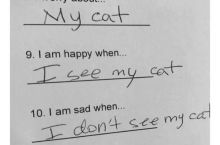 about...
My cat
9. I am happy when...
I see my cat
10. I am sad when...
I don't see my cat